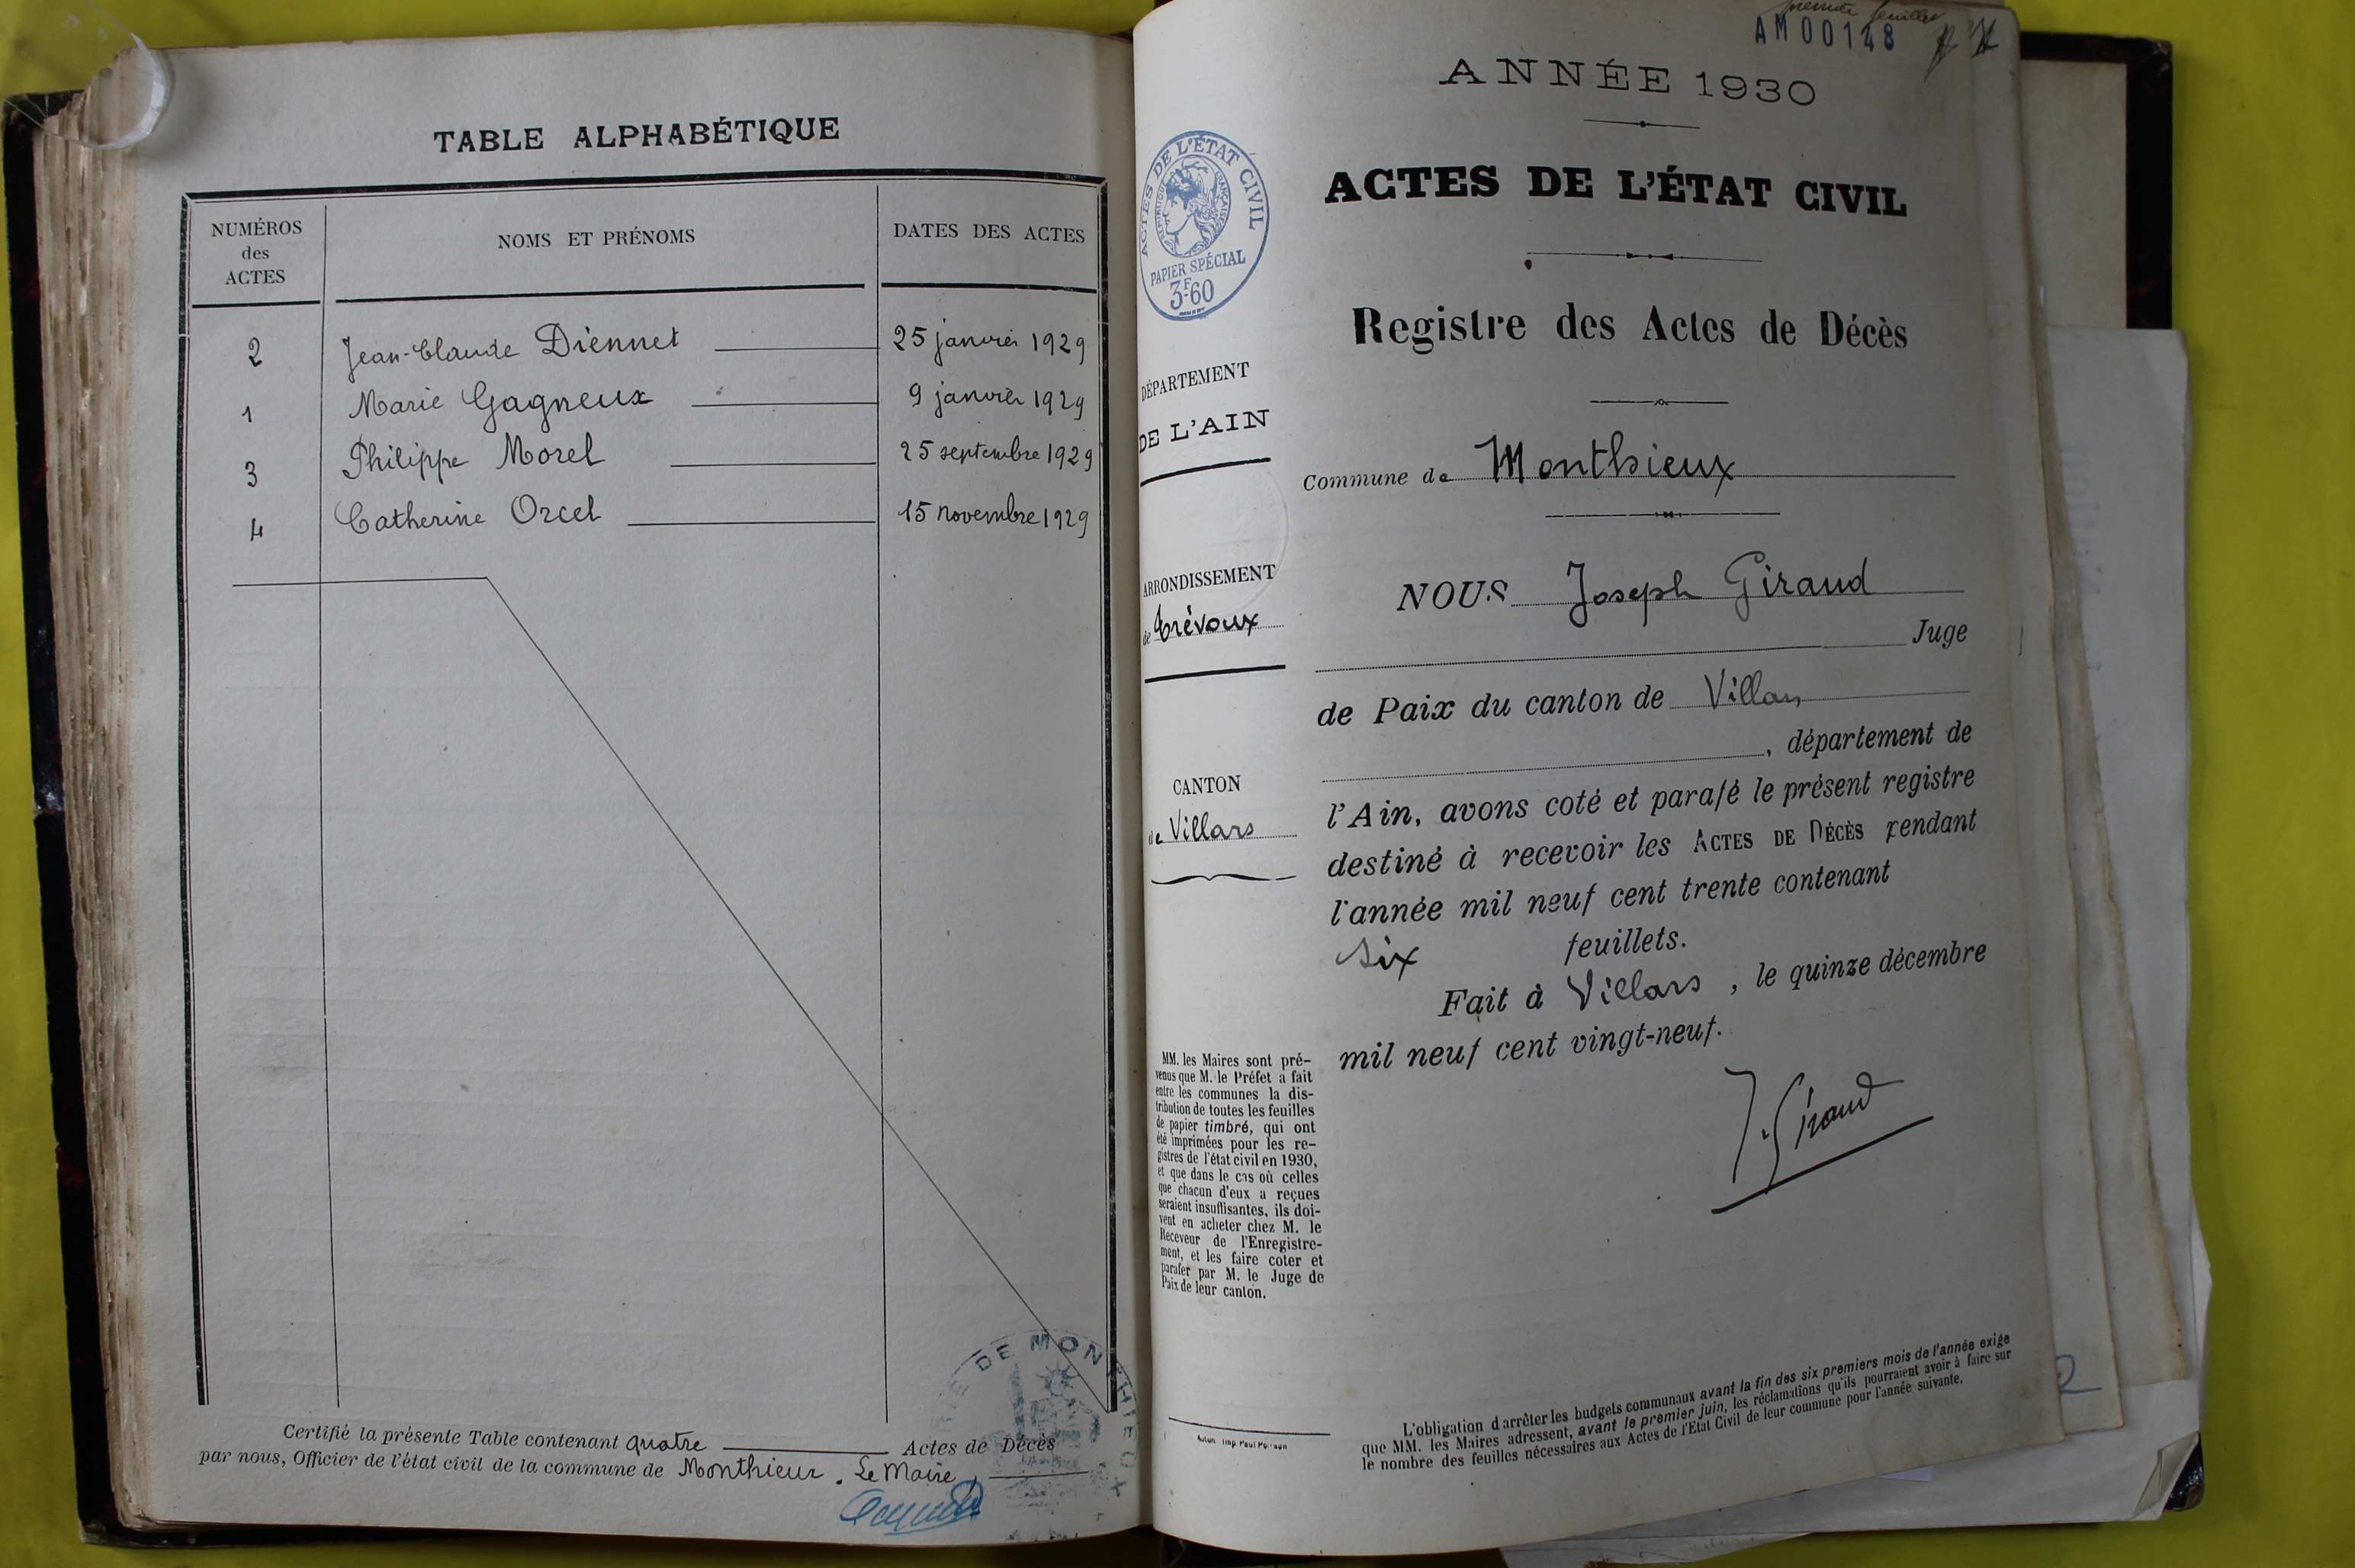 TABLE ALPHABÉTIQUE
NUMÉROS
des
ACTES
NOMS ET PRÉNOMS
DATES DES ACTES
2 Jean-Claude Diennet 25 janvier 1929
1 Marie Gagneux 9 janvier 1929
3 Philippe Morel 25 septembre 1929
4 Catherine Orcel 15 novembre 1929
Certifié la présente Table contenant quatre Actes de Décès
par nous, Officier de l'état civil de la commune de Monthieux. Le Maire,
DE MONTHIEUX
première feuille
AM00148
ANNÉE 1930
ACTES DE L'ÉTAT CIVIL
RÉPUBLIQUE FRANÇAISE
PAPIER SPÉCIAL
3F60
ACTES DE L'ÉTAT CIVIL
Registre des Actes de Décès
DÉPARTEMENT
DE L'AIN
Commune de Monthieux
ARRONDISSEMENT
de Trévoux
CANTON
de Villars
NOUS Joseph Giraud
Juge
de Paix du canton de Villars
, département de
l'Ain, avons coté et parafé le présent registre
destiné à recevoir les ACTES DE DÉCÈS pendant
l'année mil neuf cent trente contenant
six feuillets.
Fait à Villars, le quinze décembre
mil neuf cent vingt-neuf.
J. Giraud
MM. les Maires sont pré-
venus que M. le Préfet a fait
entre les communes la dis-
tribution de toutes les feuilles
de papier timbré, qui ont
été imprimées pour les re-
gistres de l'état civil en 1930,
et que dans le cas où celles
que chacun d'eux a reçues
seraient insuffisantes, ils doi-
vent en acheter chez M. le
Receveur de l'Enregistre-
ment, et les faire coter et
parafer par M. le Juge de
Paix de leur canton.
L'obligation d'arrêter les budgets communaux avant la fin des six premiers mois de l'année exige
que MM. les Maires adressent, avant le premier juin, les réclamations qu'ils pourraient avoir à faire sur
le nombre des feuilles nécessaires aux Actes de l'Etat Civil de leur commune pour l'année suivante.